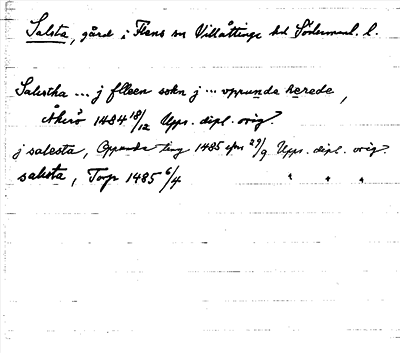 Salsta, gård i Flens sn Villåttinge hd Södermanl. l.
Salestha ... j flleen sokn j ... oppunda herede,
Åkerö 1484 18/12 Upps. dipl. orig.
j salesta, Oppunda ting 1485 efter 29/9. Upps. dipl. orig.
salesta, Torp 1485 6/4 " " "